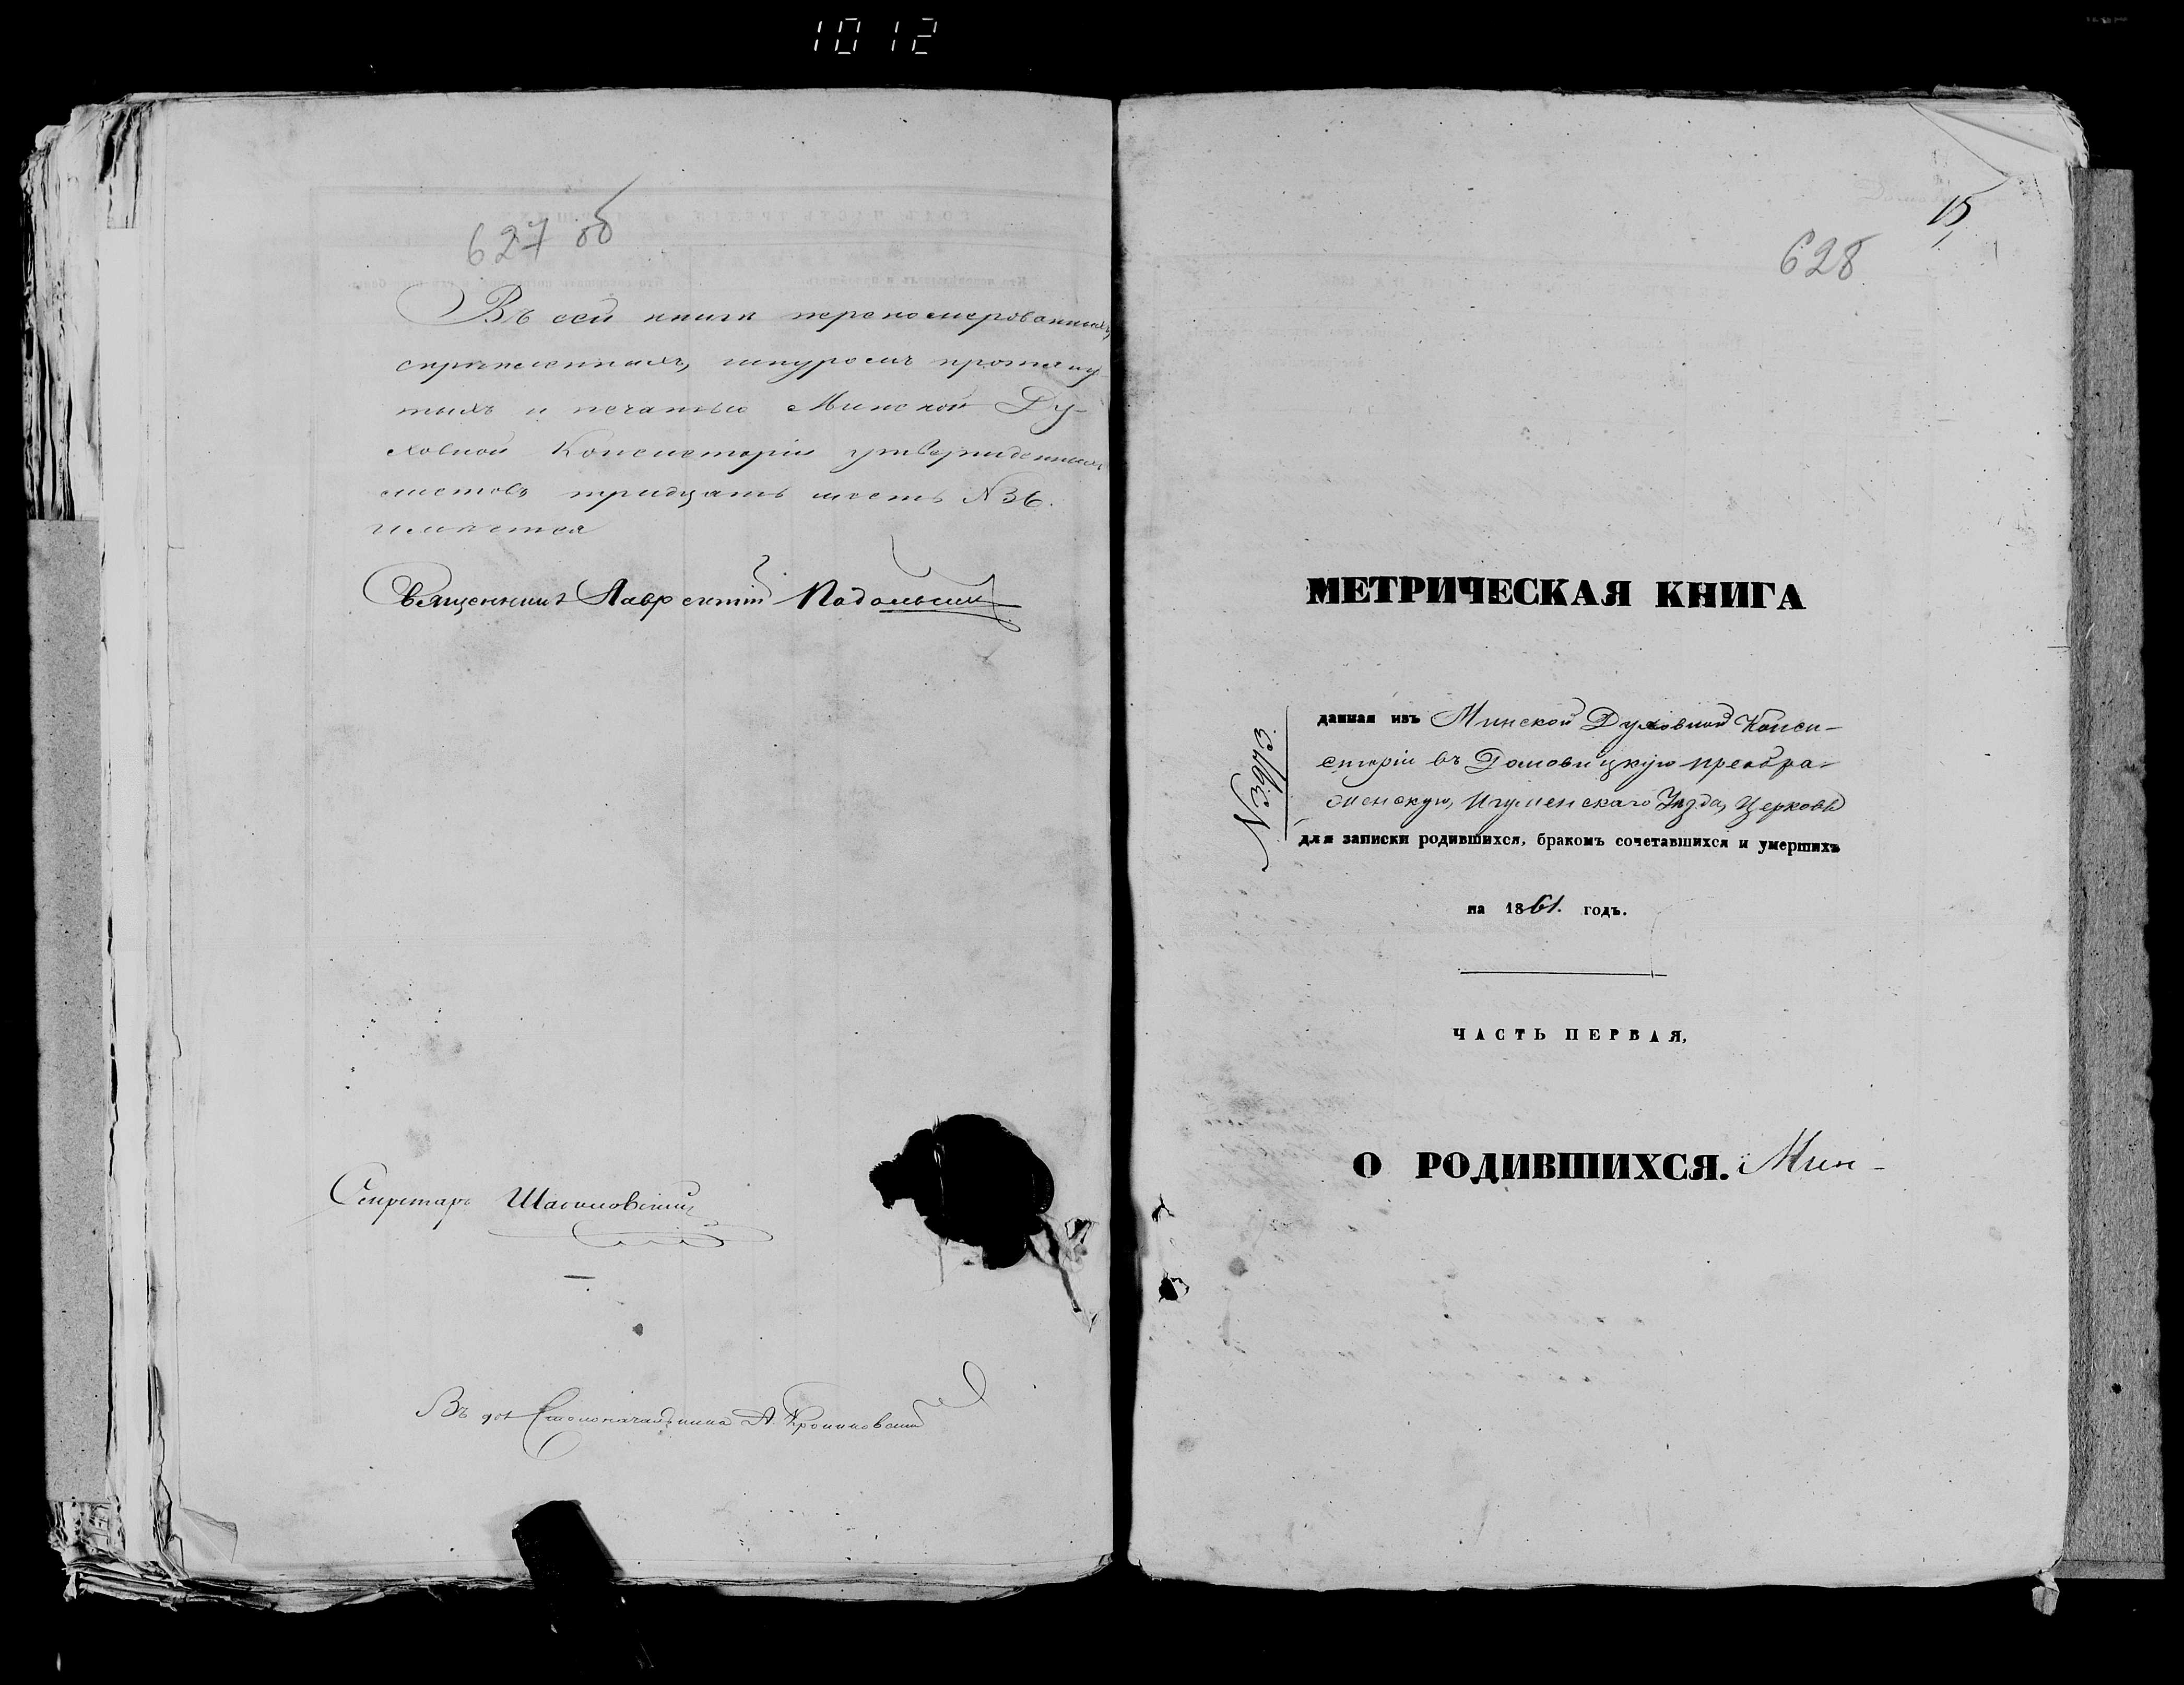 1012
627 об
Въ сей книги перенумерованныхъ,
скрѣпленныхъ, шнуромъ протяну-
тыхъ и печатью Минской Ду-
ховной Консисторіи утвержденныхъ
листовъ тридцать шесть N 36.
имѣется
Священникъ Лаврентій Подольскій
Секретарь
Въ дол Столоначальника А.
15
628
МЕТРИЧЕСКАЯ КНИГА
N 3973.
данная изъ Минской Духовной Конси-
сторіи въ Домовицкую преобра-
женскую, Игуменскаго Уѣзда, Церковь
для записки родившихся, бракомъ сочетавшихся и умершихъ
на 1861. годъ.
ЧАСТЬ ПЕРВАЯ,
О РОДИВШИХСЯ. Мин-